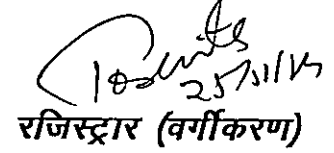 25/11/14
रजिस्ट्रार (वर्गीकरण)